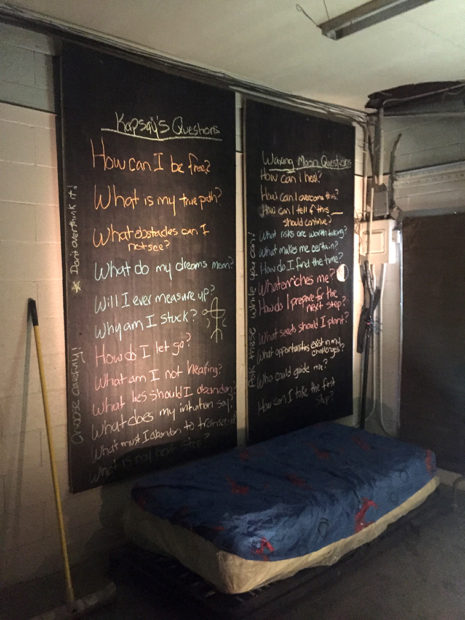 Kapsay's Questions
How can I be free?
What is my true path?
What obstacles can I
not see?
What do my dreams mean?
Will I ever measure up?
Why am I stuck?
How do I let go?
What am I not hearing?
What lies should I abandon?
What does my intuition say?
What must I abandon to
What is my next step?
Don't overthink it!
Choose carefully!
Waxing Moon Questions
How can I heal?
How can I overcome this?
How can I tell if this ___
should continue?
What risks are worth taking?
What makes me certain?
How do I find the time?
What enriches me?
How do I prepare for the
next step?
What seeds should I plant?
What opportunities exist in my
challenges?
Who could guide me?
How can I take the first
step?
Ask these while you can!